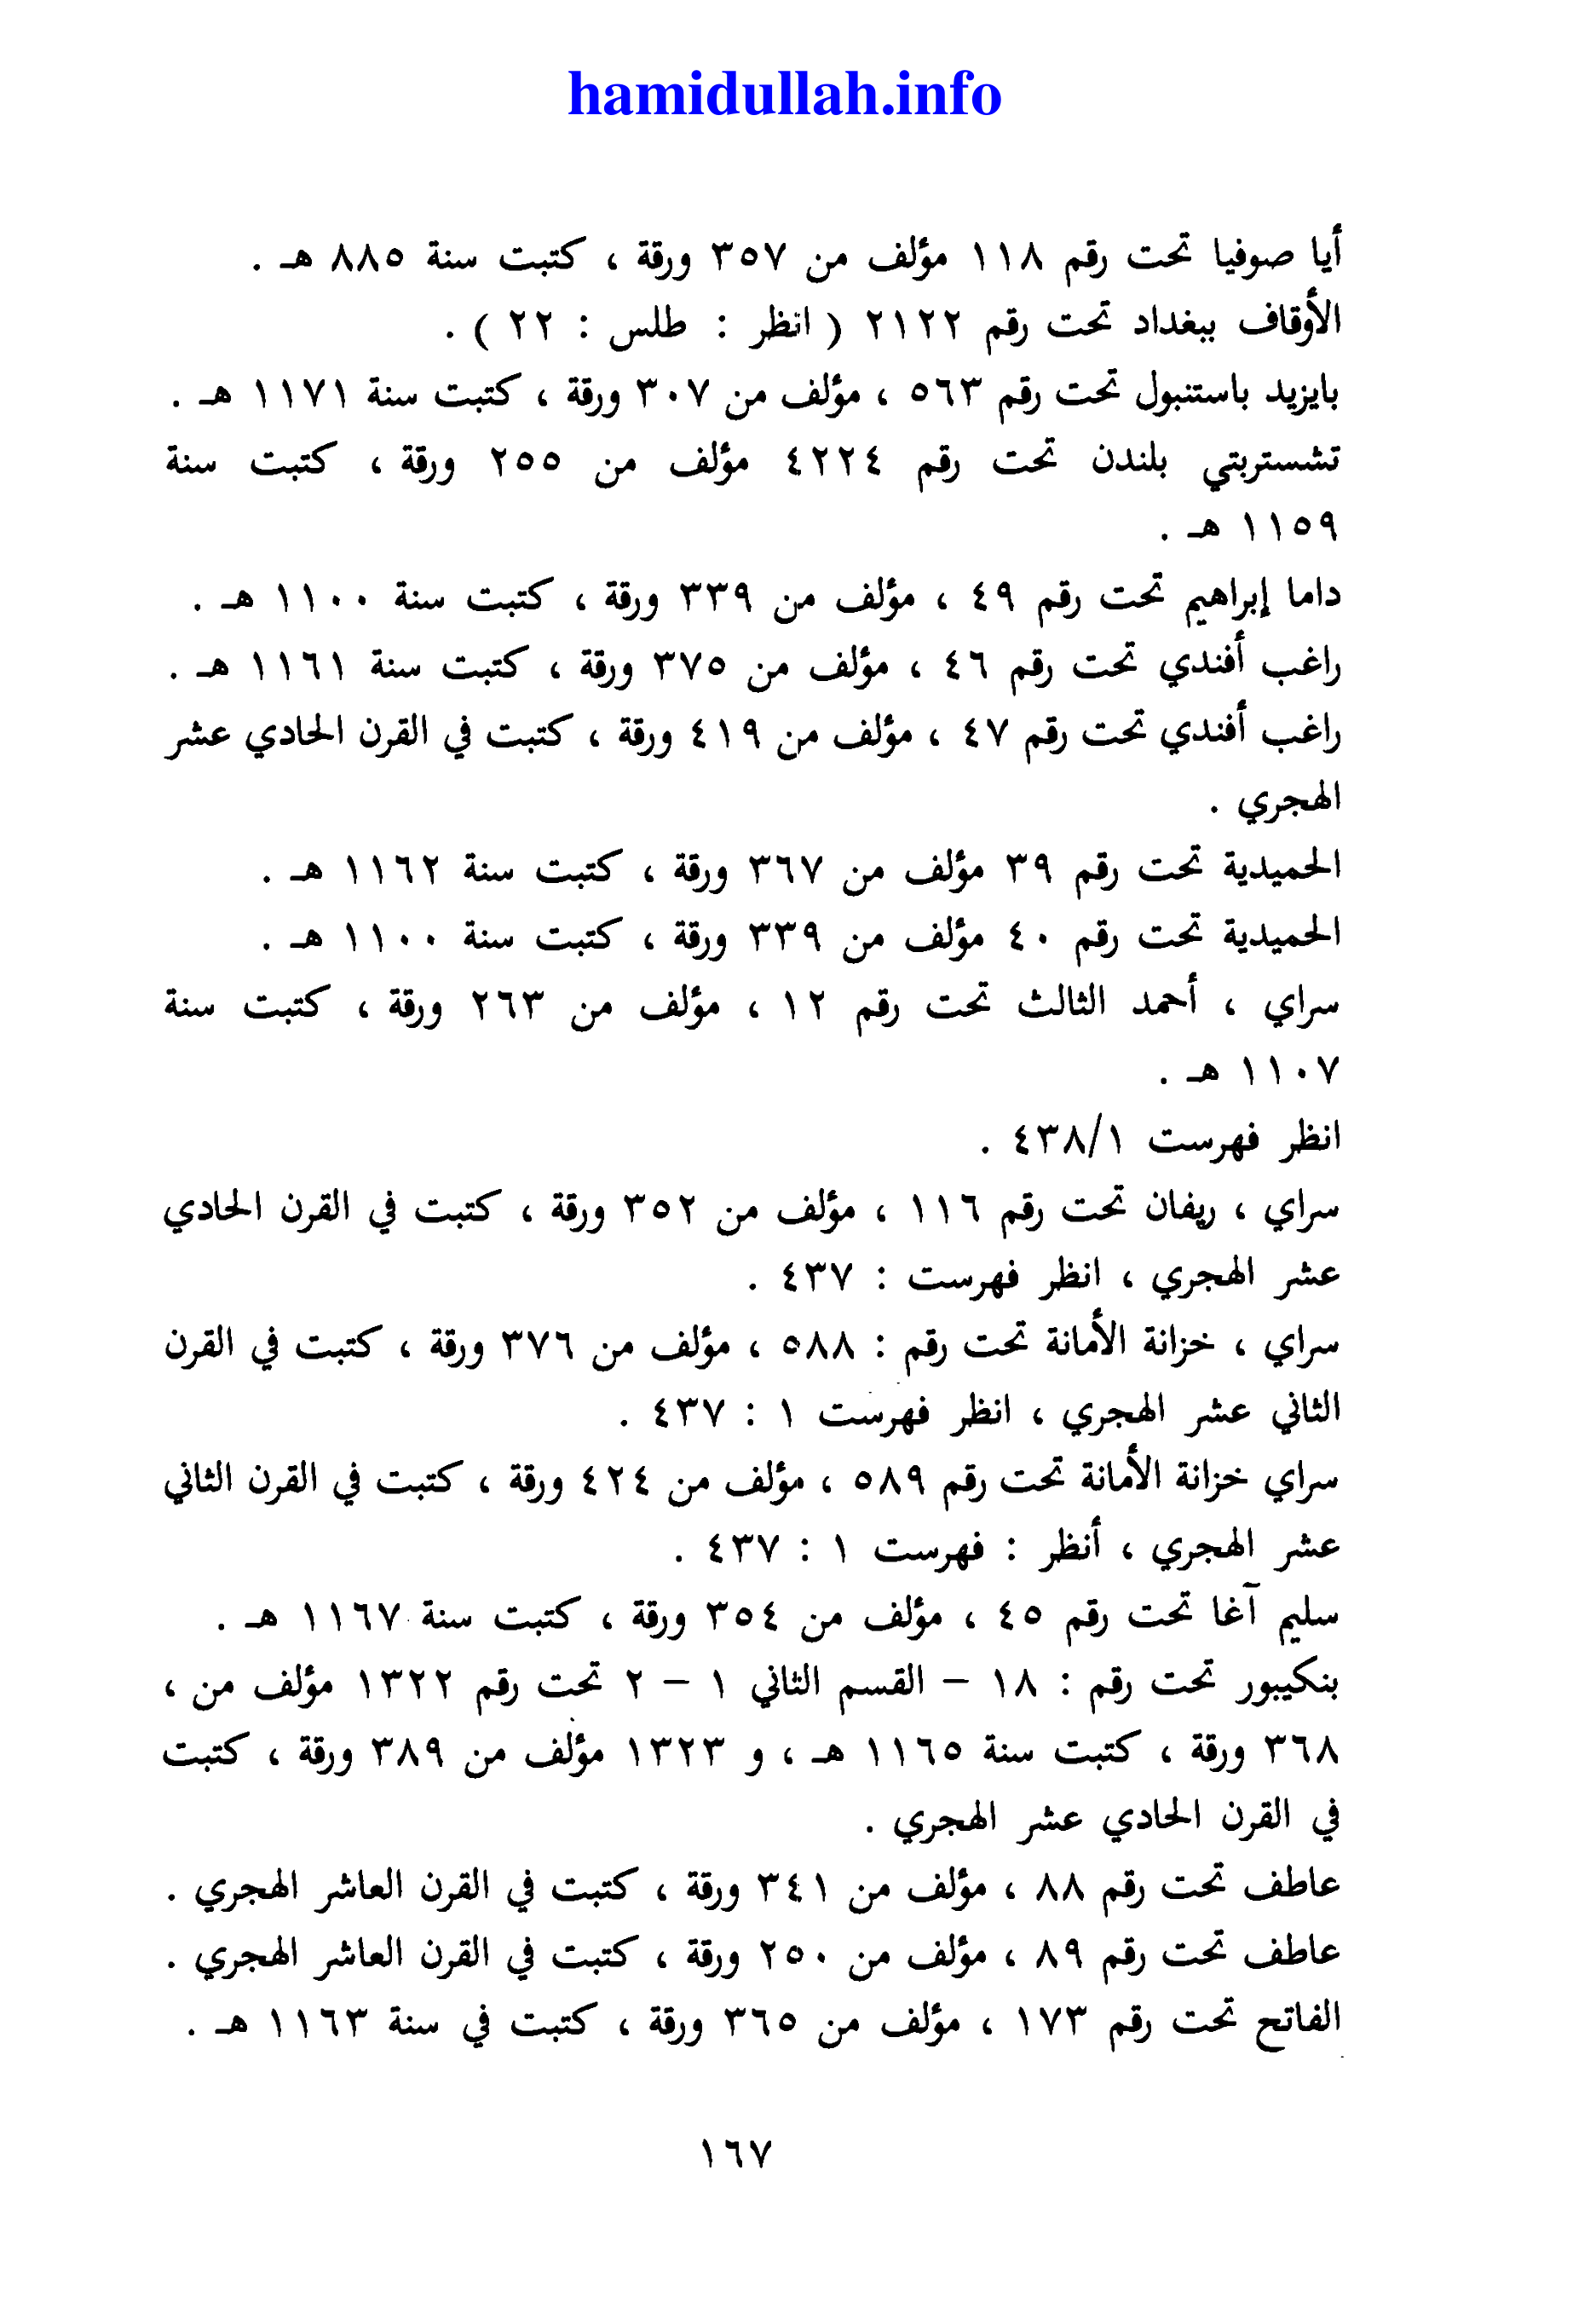 hamidullah.info
أيا صوفيا تحت رقم ١١٨ مؤلف من ٣٥٧ ورقة ، كتبت سنة ٨٨٥ هـ .
الأوقاف ببغداد تحت رقم ٢١٢٢ ( انظر : طلس : ٢٢ ) .
بايزيد باستنبول تحت رقم ٥٦٣ ، مؤلف من ٣٠٧ ورقة ، كتبت سنة ١١٧١ هـ .
تشستربتي بلندن تحت رقم ٤٢٢٤ مؤلف من ٢٥٥ ورقة ، كتبت سنة
١١٥٩ هـ .
داما إبراهيم تحت رقم ٤٩ ، مؤلف من ٣٣٩ ورقة ، كتبت سنة ١١٠٠ هـ .
راغب أفندي تحت رقم ٤٦ ، مؤلف من ٣٧٥ ورقة ، كتبت سنة ١١٦١ هـ .
راغب أفندي تحت رقم ٤٧ ، مؤلف من ٤١٩ ورقة ، كتبت في القرن الحادي عشر
الهجري .
الحميدية تحت رقم ٣٩ مؤلف من ٣٦٧ ورقة ، كتبت سنة ١١٦٢ هـ .
الحميدية تحت رقم ٤٠ مؤلف من ٣٣٩ ورقة ، كتبت سنة ١١٠٠ هـ .
سراي ، أحمد الثالث تحت رقم ١٢ ، مؤلف من ٢٦٣ ورقة ، كتبت سنة
١١٠٧ هـ .
انظر فهرست ٤٣٨/١ .
سراي ، ريفان تحت رقم ١١٦ ، مؤلف من ٣٥٢ ورقة ، كتبت في القرن الحادي
عشر الهجري ، انظر فهرست : ٤٣٧ .
سراي ، خزانة الأمانة تحت رقم : ٥٨٨ ، مؤلف من ٣٧٦ ورقة ، كتبت في القرن
الثاني عشر الهجري ، انظر فهرست ١ : ٤٣٧ .
سراي خزانة الأمانة تحت رقم ٥٨٩ ، مؤلف من ٤٢٤ ورقة ، كتبت في القرن الثاني
عشر الهجري ، أنظر : فهرست ١ : ٤٣٧ .
سليم آغا تحت رقم ٤٥ ، مؤلف من ٣٥٤ ورقة ، كتبت سنة ١١٦٧ هـ .
بنكيبور تحت رقم : ١٨ – القسم الثاني ١ – ٢ تحت رقم ١٣٢٢ مؤلف من ،
٣٦٨ ورقة ، كتبت سنة ١١٦٥ هـ ، و ١٣٢٣ مؤلف من ٣٨٩ ورقة ، كتبت
في القرن الحادي عشر الهجري .
عاطف تحت رقم ٨٨ ، مؤلف من ٣٤١ ورقة ، كتبت في القرن العاشر الهجري .
عاطف تحت رقم ٨٩ ، مؤلف من ٢٥٠ ورقة ، كتبت في القرن العاشر الهجري .
الفاتح تحت رقم ١٧٣ ، مؤلف من ٣٦٥ ورقة ، كتبت في سنة ١١٦٣ هـ .
١٦٧